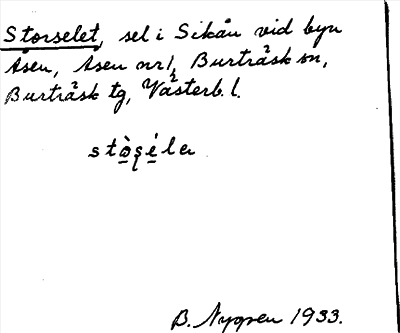 Storselet, sel i Sikån vid byn
Åsen, Åsen nr 1, Burträsk sn,
Burträsk tg, Västerb. l.
B. Nygren 1933.